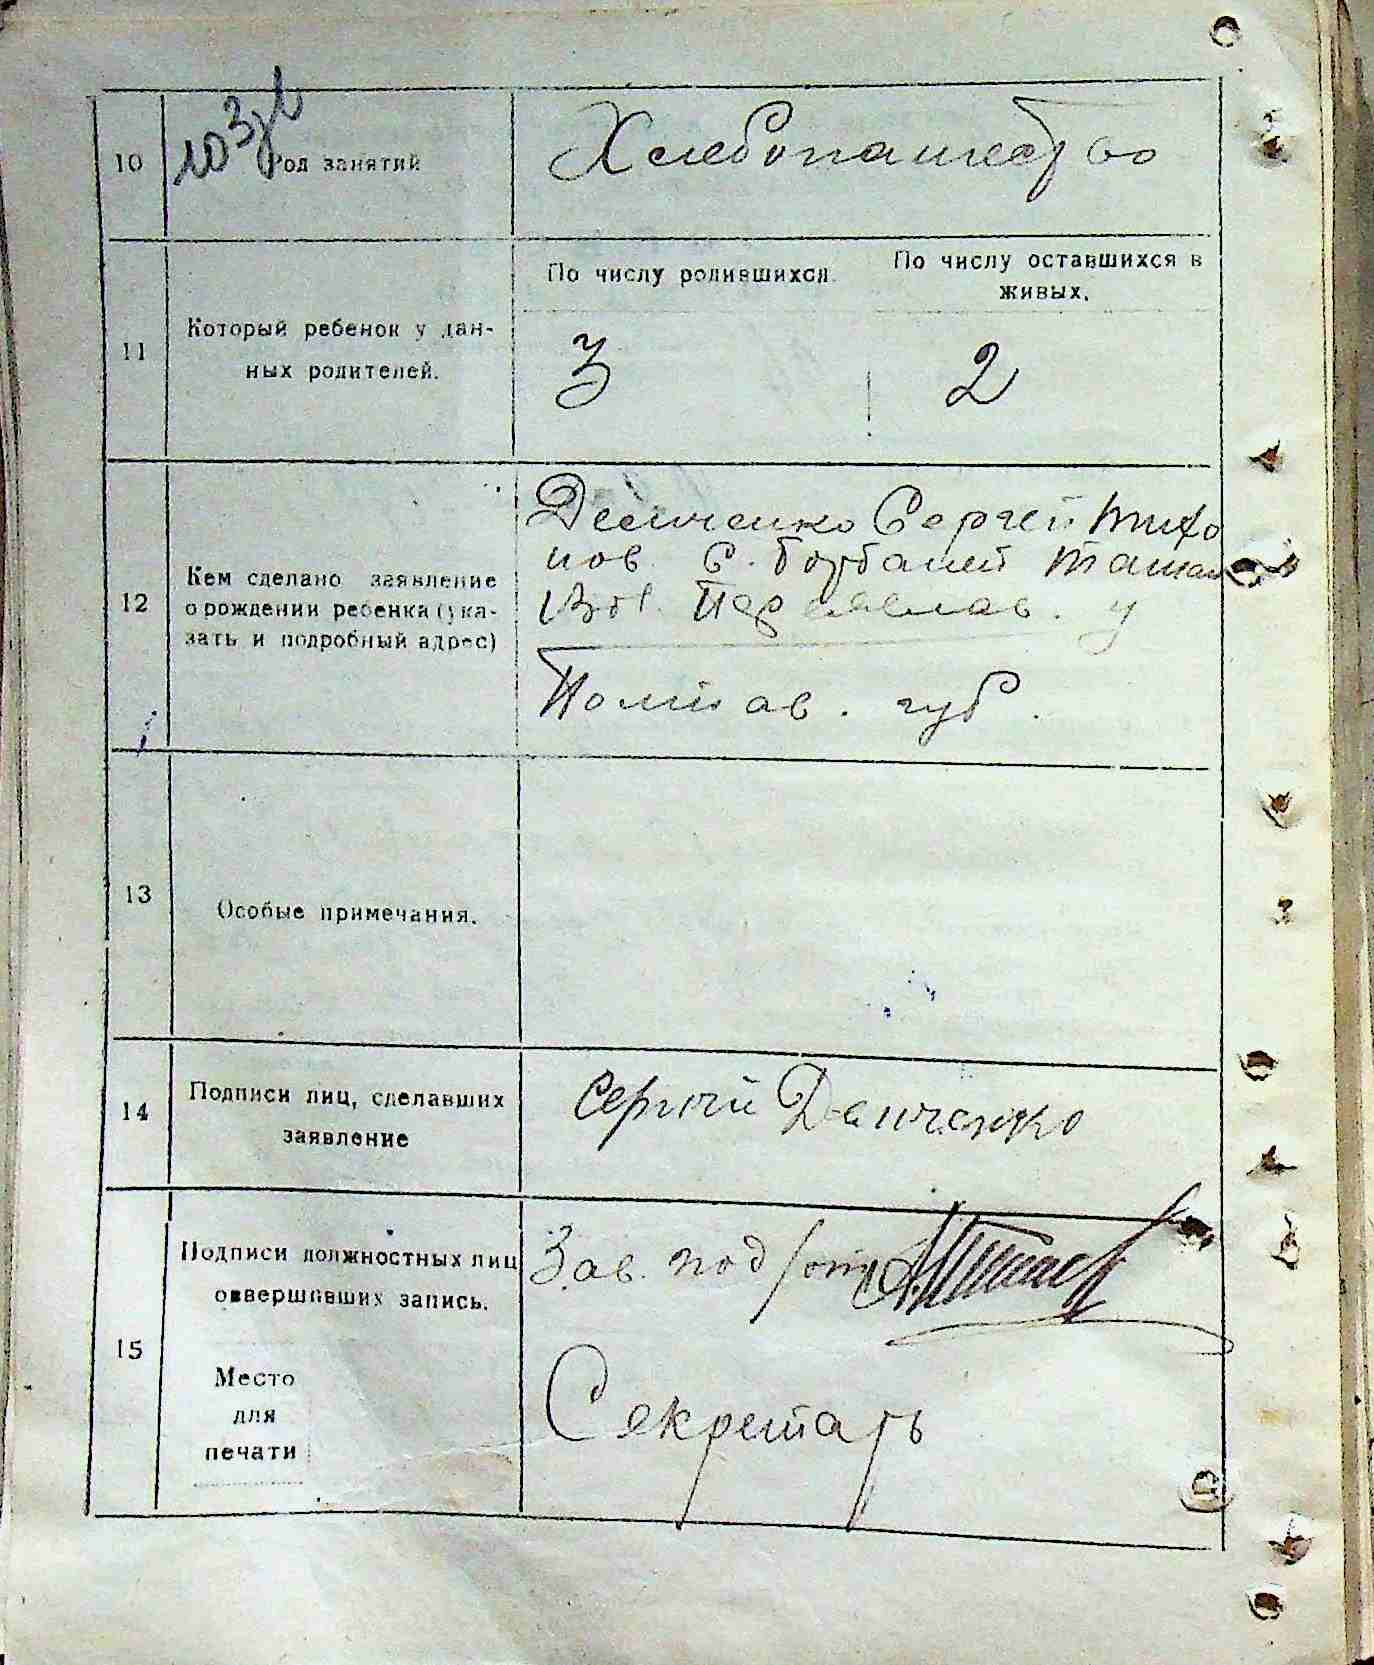 10
Род занятий
Хлебопашество
11
Который ребенок у дан-
ных родителей.
По числу родившихся.
По числу оставшихся в
живых.
3
2
12
Кем сделано заявление
о рождении ребенка (ука-
зать и подробный адрес)
Демченко Сергей Тихо
нов. С. Борбалей Ташан
Вол. Переяслав. у
Полтав. губ.
13
Особые примечания.
14
Подписи лиц, сделавших
заявление
Сергий Демченко
15
Подписи должностных лиц
совершивших запись.
Зав. под/отд
Место
для
печати
Секретарь